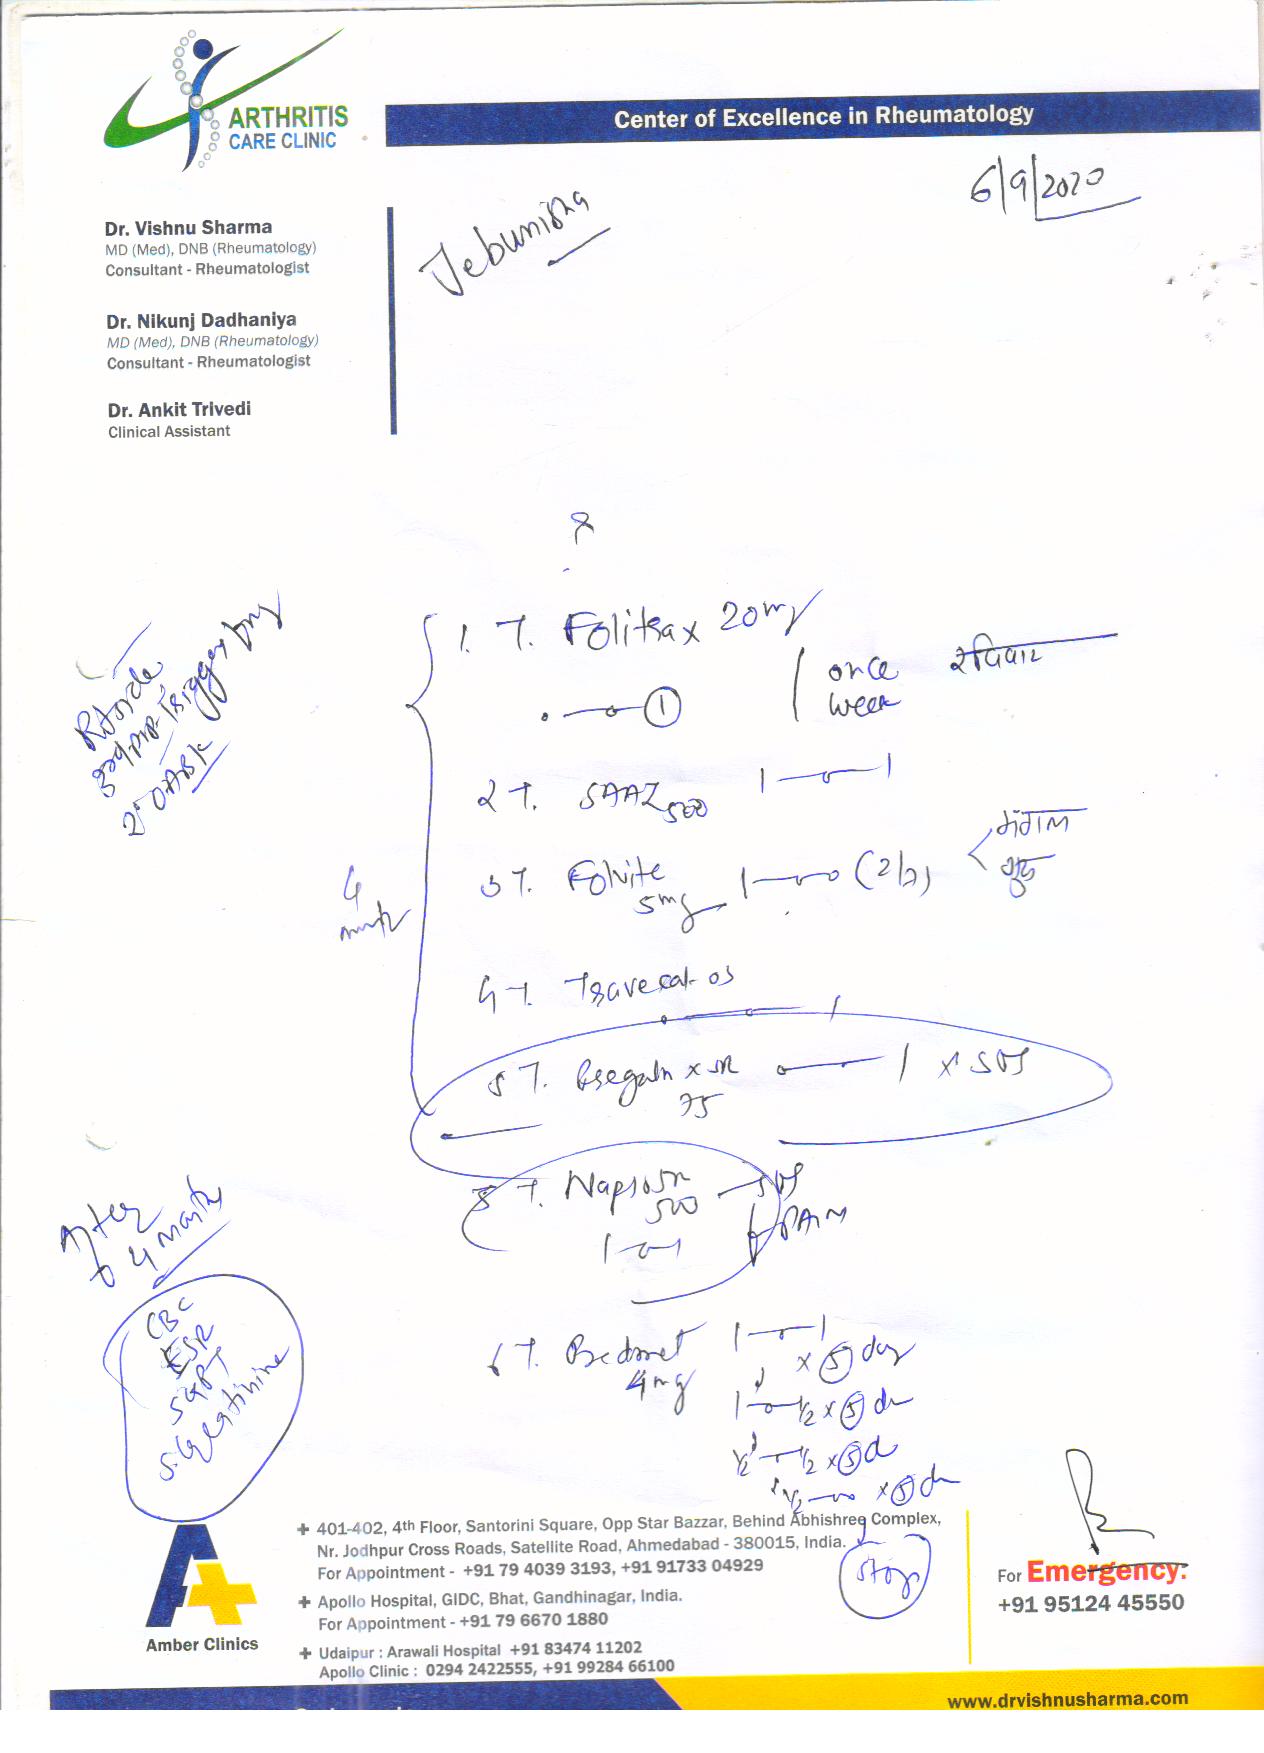 ARTHRITIS
CARE CLINIC
Center of Excellence in Rheumatology
6/9/2020
Jebunisha
Dr. Vishnu Sharma
MD (Med), DNB (Rheumatology)
Consultant - Rheumatologist
Dr. Nikunj Dadhaniya
MD (Med), DNB (Rheumatology)
Consultant - Rheumatologist
Dr. Ankit Trivedi
Clinical Assistant
1. T. Folitrax 20mg
once રવિવાર
week
1
2 T. SAAZ 500 1—o—1
3 T. Folvite 1—o—o (2/7) મંગળ
5mg ગુરુ
4
4 T. Travecal-D3
5 T. x SR 1 x SOS
75
T. 500 SOS
PAIN
1—o—1
After
4
CBC
ESR
SGPT
S. Creatinine
6 T. 1—o—1
4mg x 5 day
1—o—1/2 x 5 d
1/2—o—1/2 x 5 d
1/2—o—o x 5 d
stop
401-402, 4th Floor, Santorini Square, Opp Star Bazzar, Behind Abhishree Complex,
Nr. Jodhpur Cross Roads, Satellite Road, Ahmedabad - 380015, India.
For Appointment - +91 79 4039 3193, +91 91733 04929
Apollo Hospital, GIDC, Bhat, Gandhinagar, India.
For Appointment - +91 79 6670 1880
Udaipur : Arawali Hospital +91 83474 11202
Apollo Clinic : 0294 2422555, +91 99284 66100
Amber Clinics
For Emergency:
+91 95124 45550
www.drvishnusharma.com